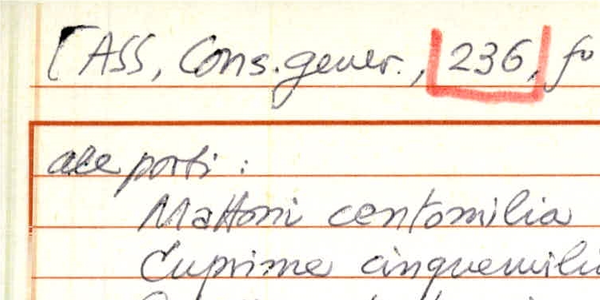 [ASS, Cons. gener., 236, fo
alle porti:
Mattoni centomilia
Cuprime cinquemili